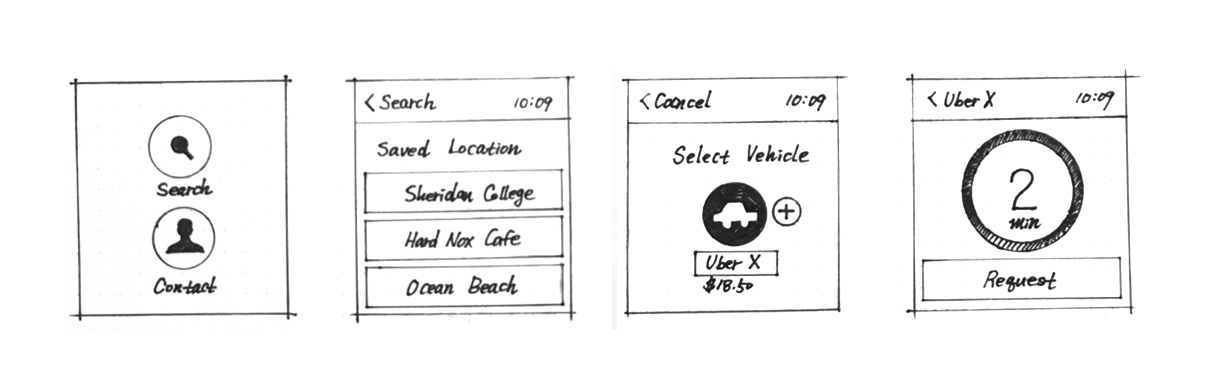 Search
Contact
< Search 10:09
Saved Location
Sheridan College
Hard Nox Cafe
Ocean Beach
< Cancel 10:09
Select Vehicle
+
Uber X
$18.50
< Uber X 10:09
2
min
Request